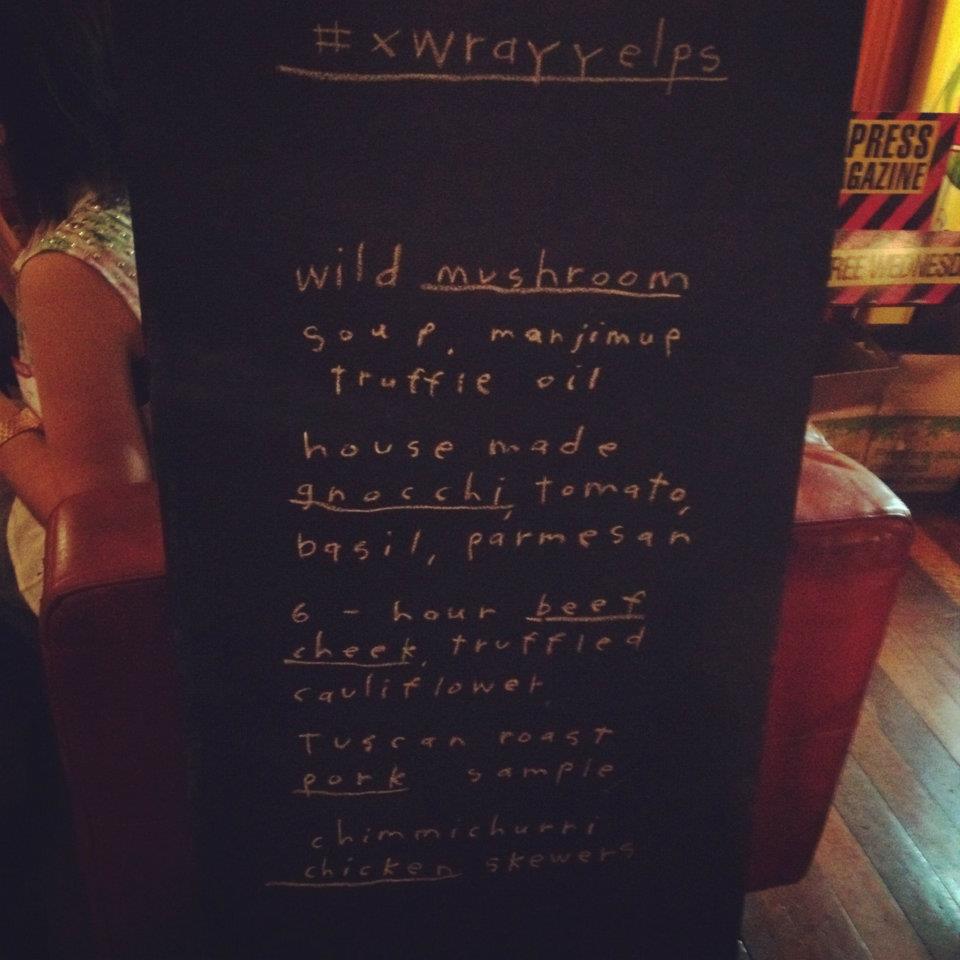 #xwrayyelps
wild mushroom
soup, manjimup
truffle oil
house made
gnocchi, tomato,
basil, parmesan
6 - hour beef
cheek, truffled
cauliflower
Tuscan roast
pork sample
chimmichurri
chicken skewers
PRESS
GAZINE
REE WEDNESD